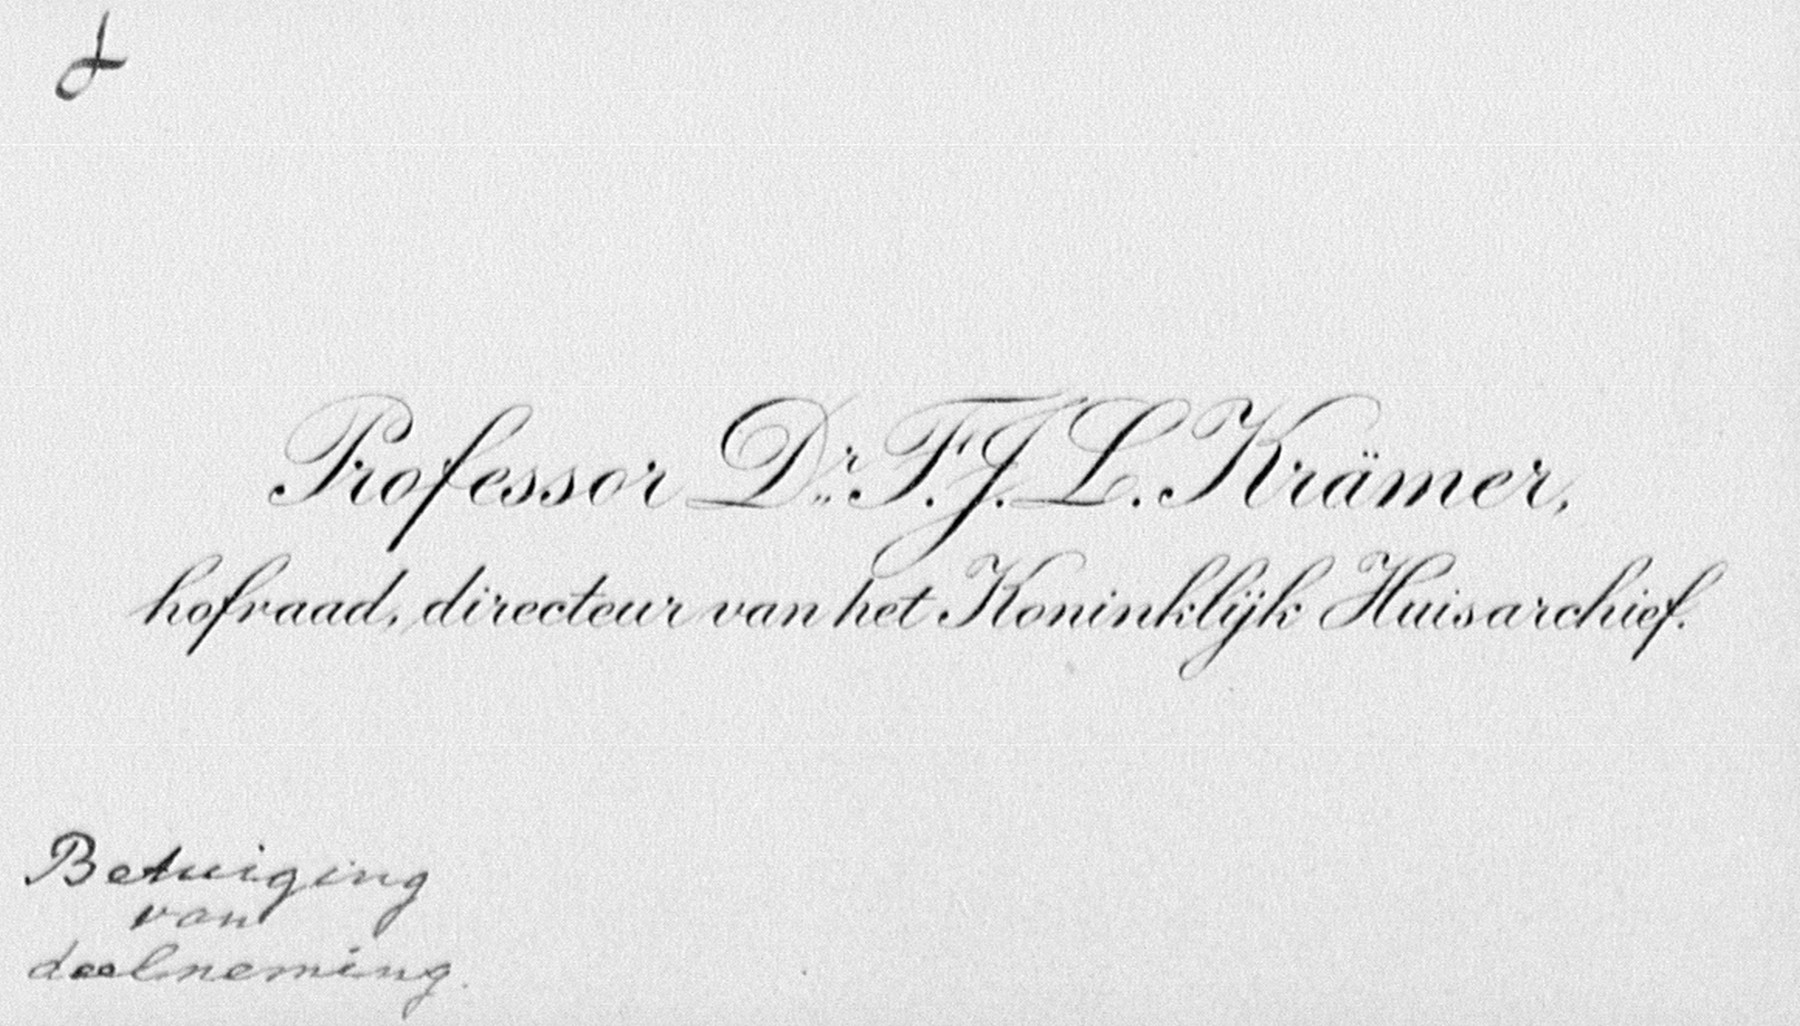 Professor Dr. F.J.L. Krämer,
hofraad, directeur van het Koninklijk Huisarchief.
Betuiging
van
deelneming.